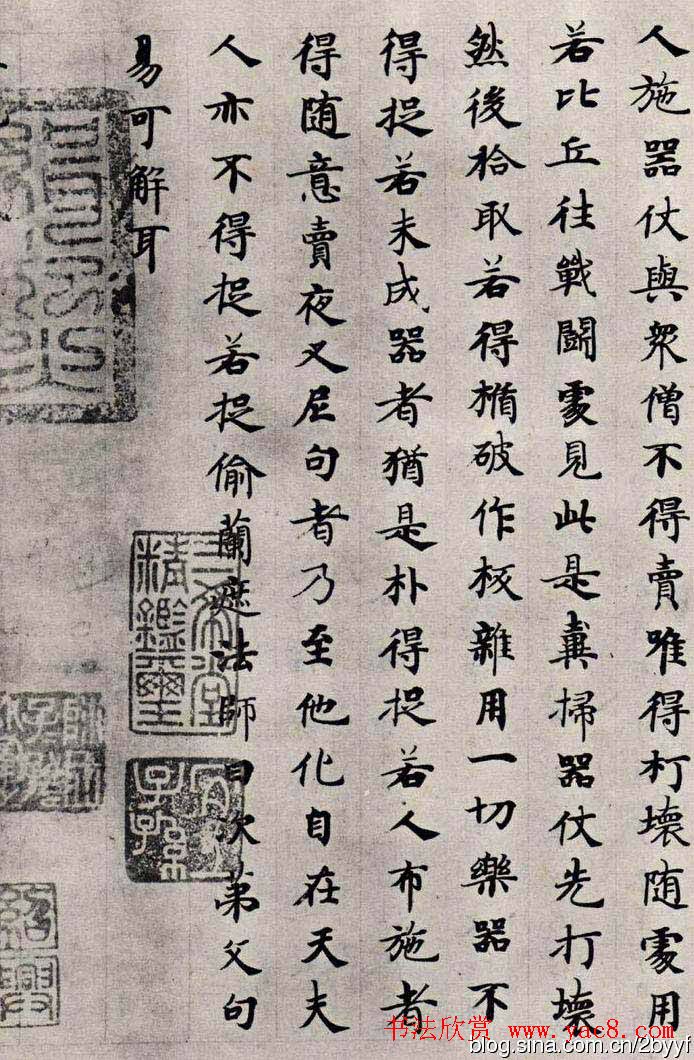 人施器仗與衆僧不得賣唯得打壞随處用
若比丘往戰鬪處見此是糞掃器仗先打壞
然後拾取若得楯破作板雜用一切樂器不
得捉若未成器者猶是朴得捉若人布施者
得随意賣夜叉尼句者乃至他化自在天夫
人亦不得捉若捉偷蘭遮法師曰次第父句
易可解耳
三希堂
精鑑璽
宜
子孫
紹
興
书法欣赏 www.yac8.com
blog.sina.com.cn/2byyf